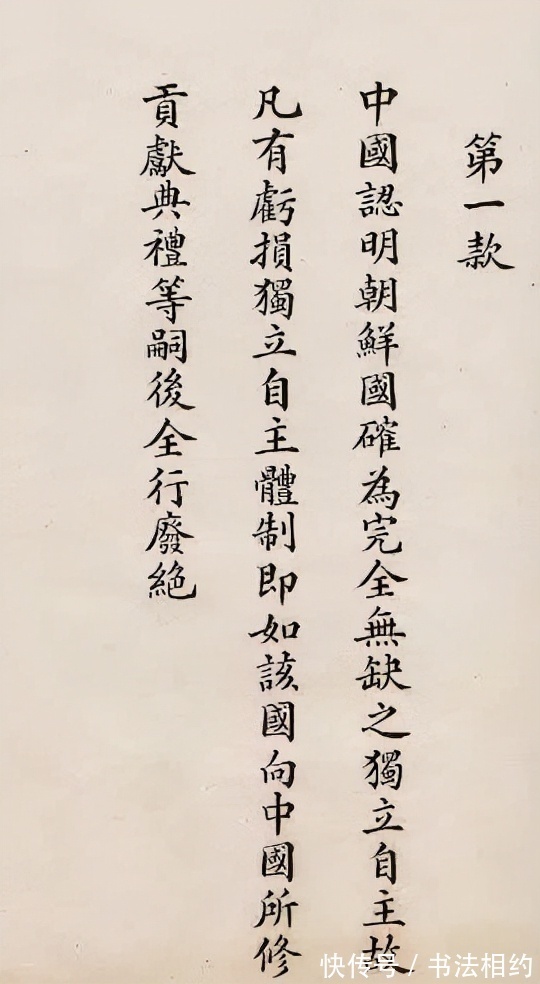 第一款
中國認明朝鮮國確為完全無缺之獨立自主故
凡有虧損獨立自主體制即如該國向中國所修
貢獻典禮等嗣後全行廢絶
快传号/书法相约